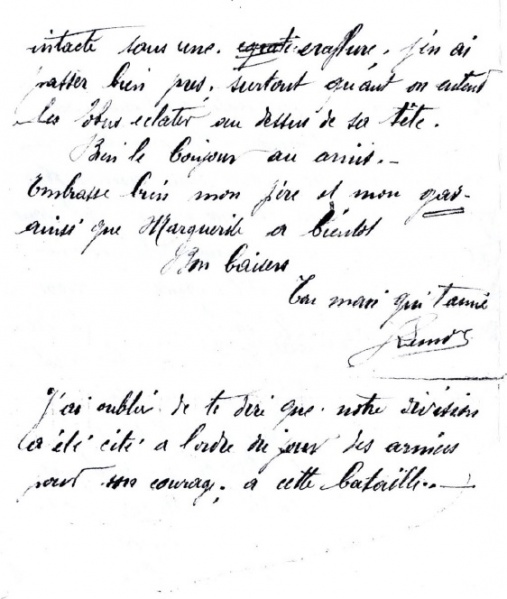 intacte sans une eraflure. j'en ai
passer bien pres. surtout quant on entent
les obus eclater au dessus de sa tête.
Bien le bonjour au amis.
Embrasse bien mon père et mon gas
ainsi que Marguerite a bientot
Bon baisers
Ton mari qui t'aime
J'ai oublié de te dire que notre division
a été cité a l'ordre du jour des armées
pour son courage. a cette bataille.